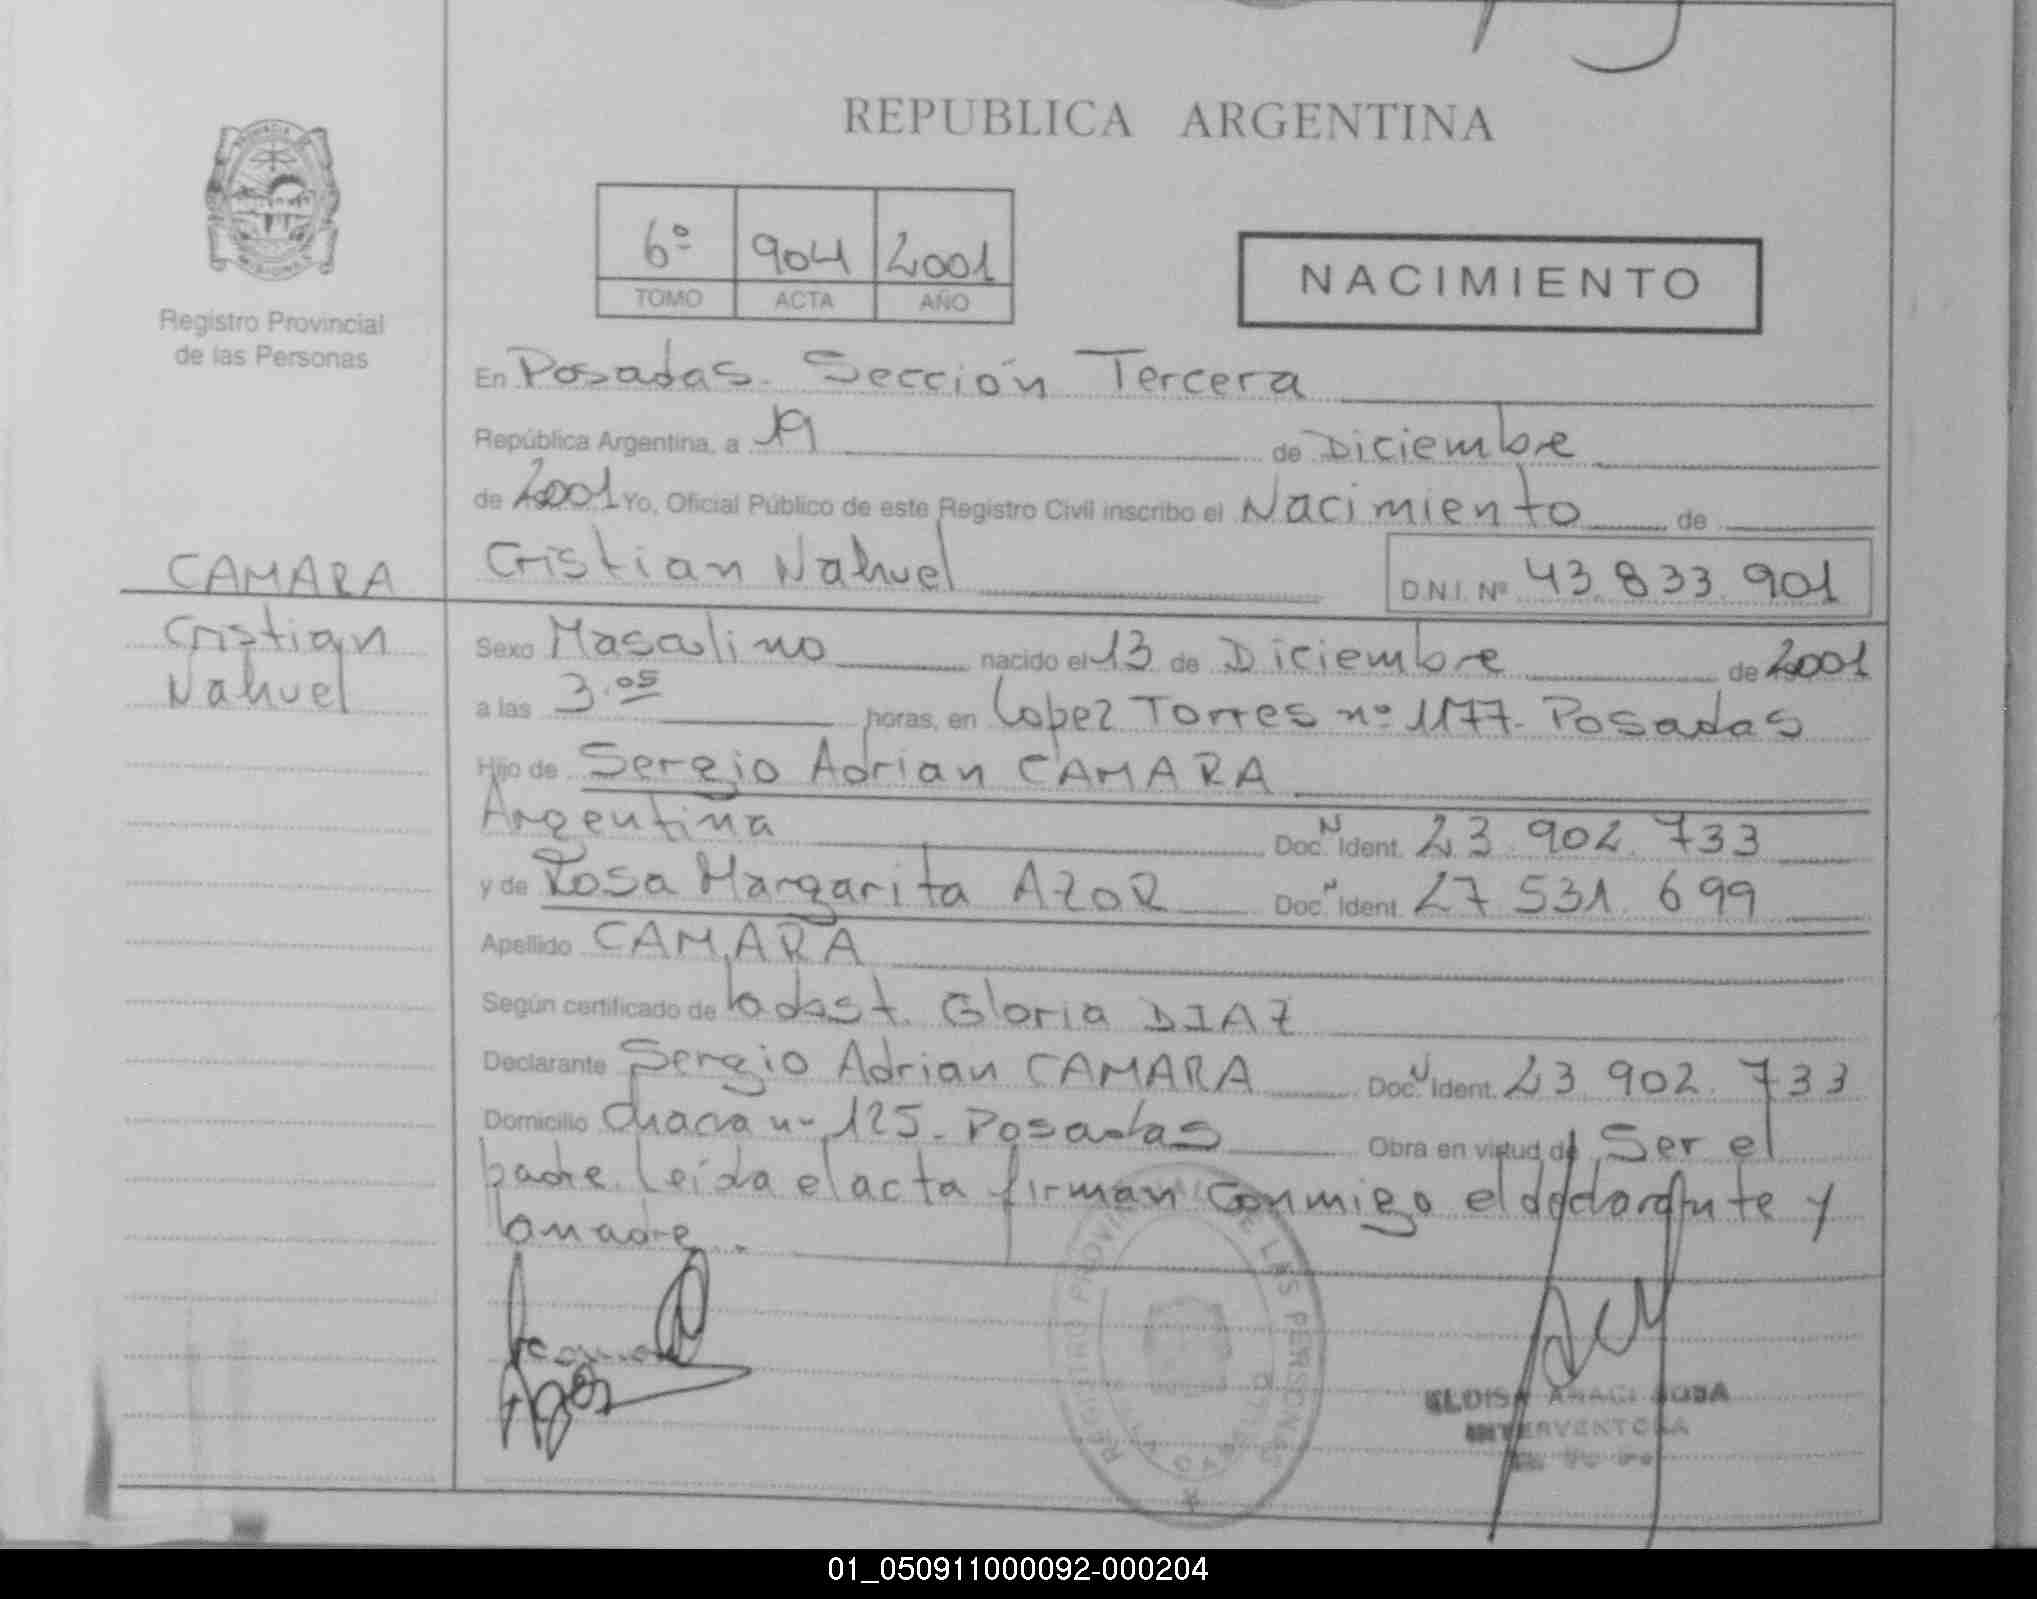 REPUBLICA ARGENTINA
6º 904 2001
TOMO ACTA AÑO
NACIMIENTO
Registro Provincial
de las Personas
En Posadas. Sección Tercera
República Argentina, a 19 de Diciembre
de 2001 Yo, Oficial Público de este Registro Civil inscribo el Nacimiento de
Cristian Nahuel D.N.I. Nº 43.833.901
CAMARA
Cristian
Nahuel
Sexo Masculino nacido el 13 de Diciembre de 2001
a las 3.05 horas, en Lopez Torres nº 1177. Posadas
Hijo de Sergio Adrian CAMARA
Argentina Doc. N Ident. 23.902.733
y de Rosa Margarita AZOR Doc. N Ident. 27.531.699
Apellido CAMARA
Según certificado de la obst. Gloria DIAZ
Declarante Sergio Adrian CAMARA Doc. N Ident. 23.902.733
Domicilio Chacra nº 125. Posadas Obra en virtud de Ser el
padre. Leída el acta firman conmigo el declarante y
la madre.
REGISTRO PROVINCIAL DE LAS PERSONAS
ELOISA ARACI SOSA
INTERVENTORA
01_050911000092-000204